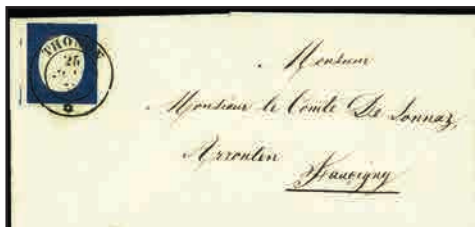 THONON
25
Monsieur
Monsieur le Comte De Sonnaz,
Arrenten
Faucigny